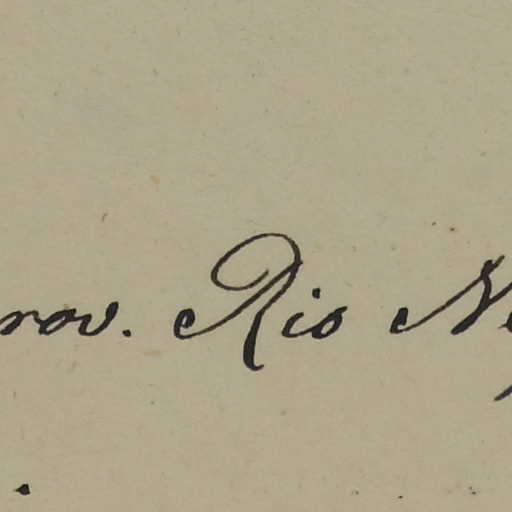 rov. Rio Ne